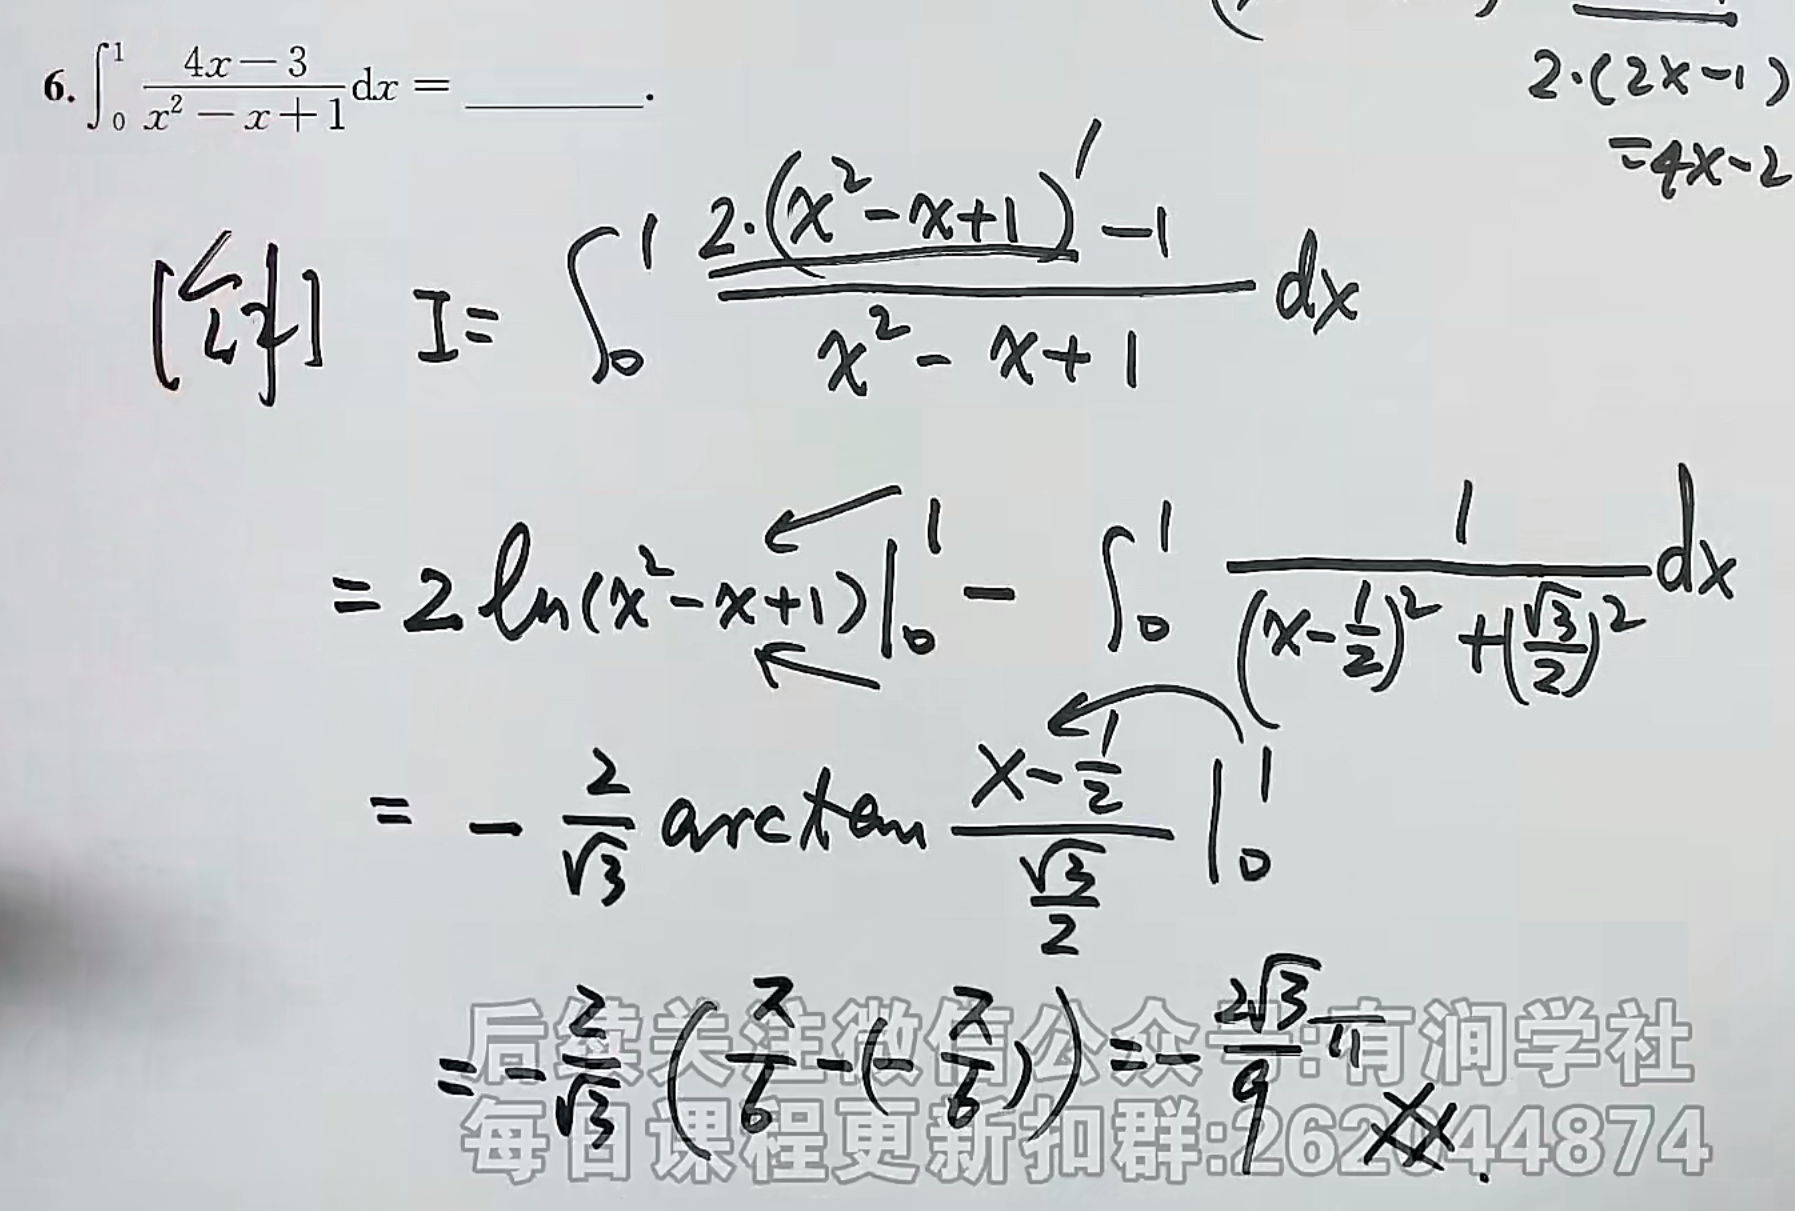 2·(2x-1)
=4x-2
6. ∫₀¹ (4x-3)/(x²-x+1) dx = ______.
[解] I= ∫₀¹ (2·(x²-x+1)′-1)/(x²-x+1) dx
= 2 ln(x²-x+1)|₀¹ - ∫₀¹ 1/((x-1/2)²+(√3/2)²) dx
= - 2/√3 arctan (x-1/2)/(√3/2) |₀¹
= - 2/√3 (π/6-(-π/6)) = - 2√3/9 π
后续关注微信公众号:有润学社
每日课程更新扣群:262044874